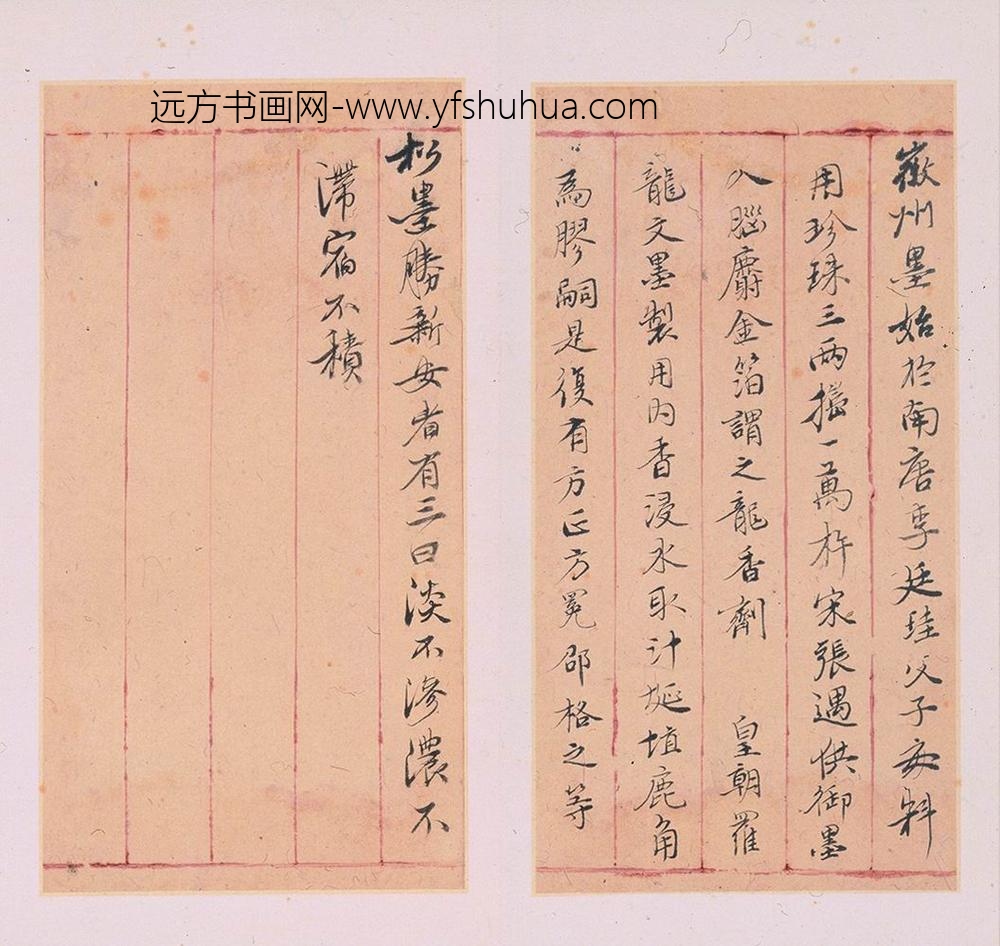 远方书画网-www.yfshuhua.com
徽州墨始於南唐李廷珪父子家料
用珍珠三兩搗一萬杵宋張遇供御墨
入腦麝金箔謂之龍香劑 皇朝羅
龍文墨製用內香浸水取汁埏埴鹿角
為膠嗣是復有方正方冕邵格之等
松墨勝新安者有三曰淡不滲濃不
滯宿不積